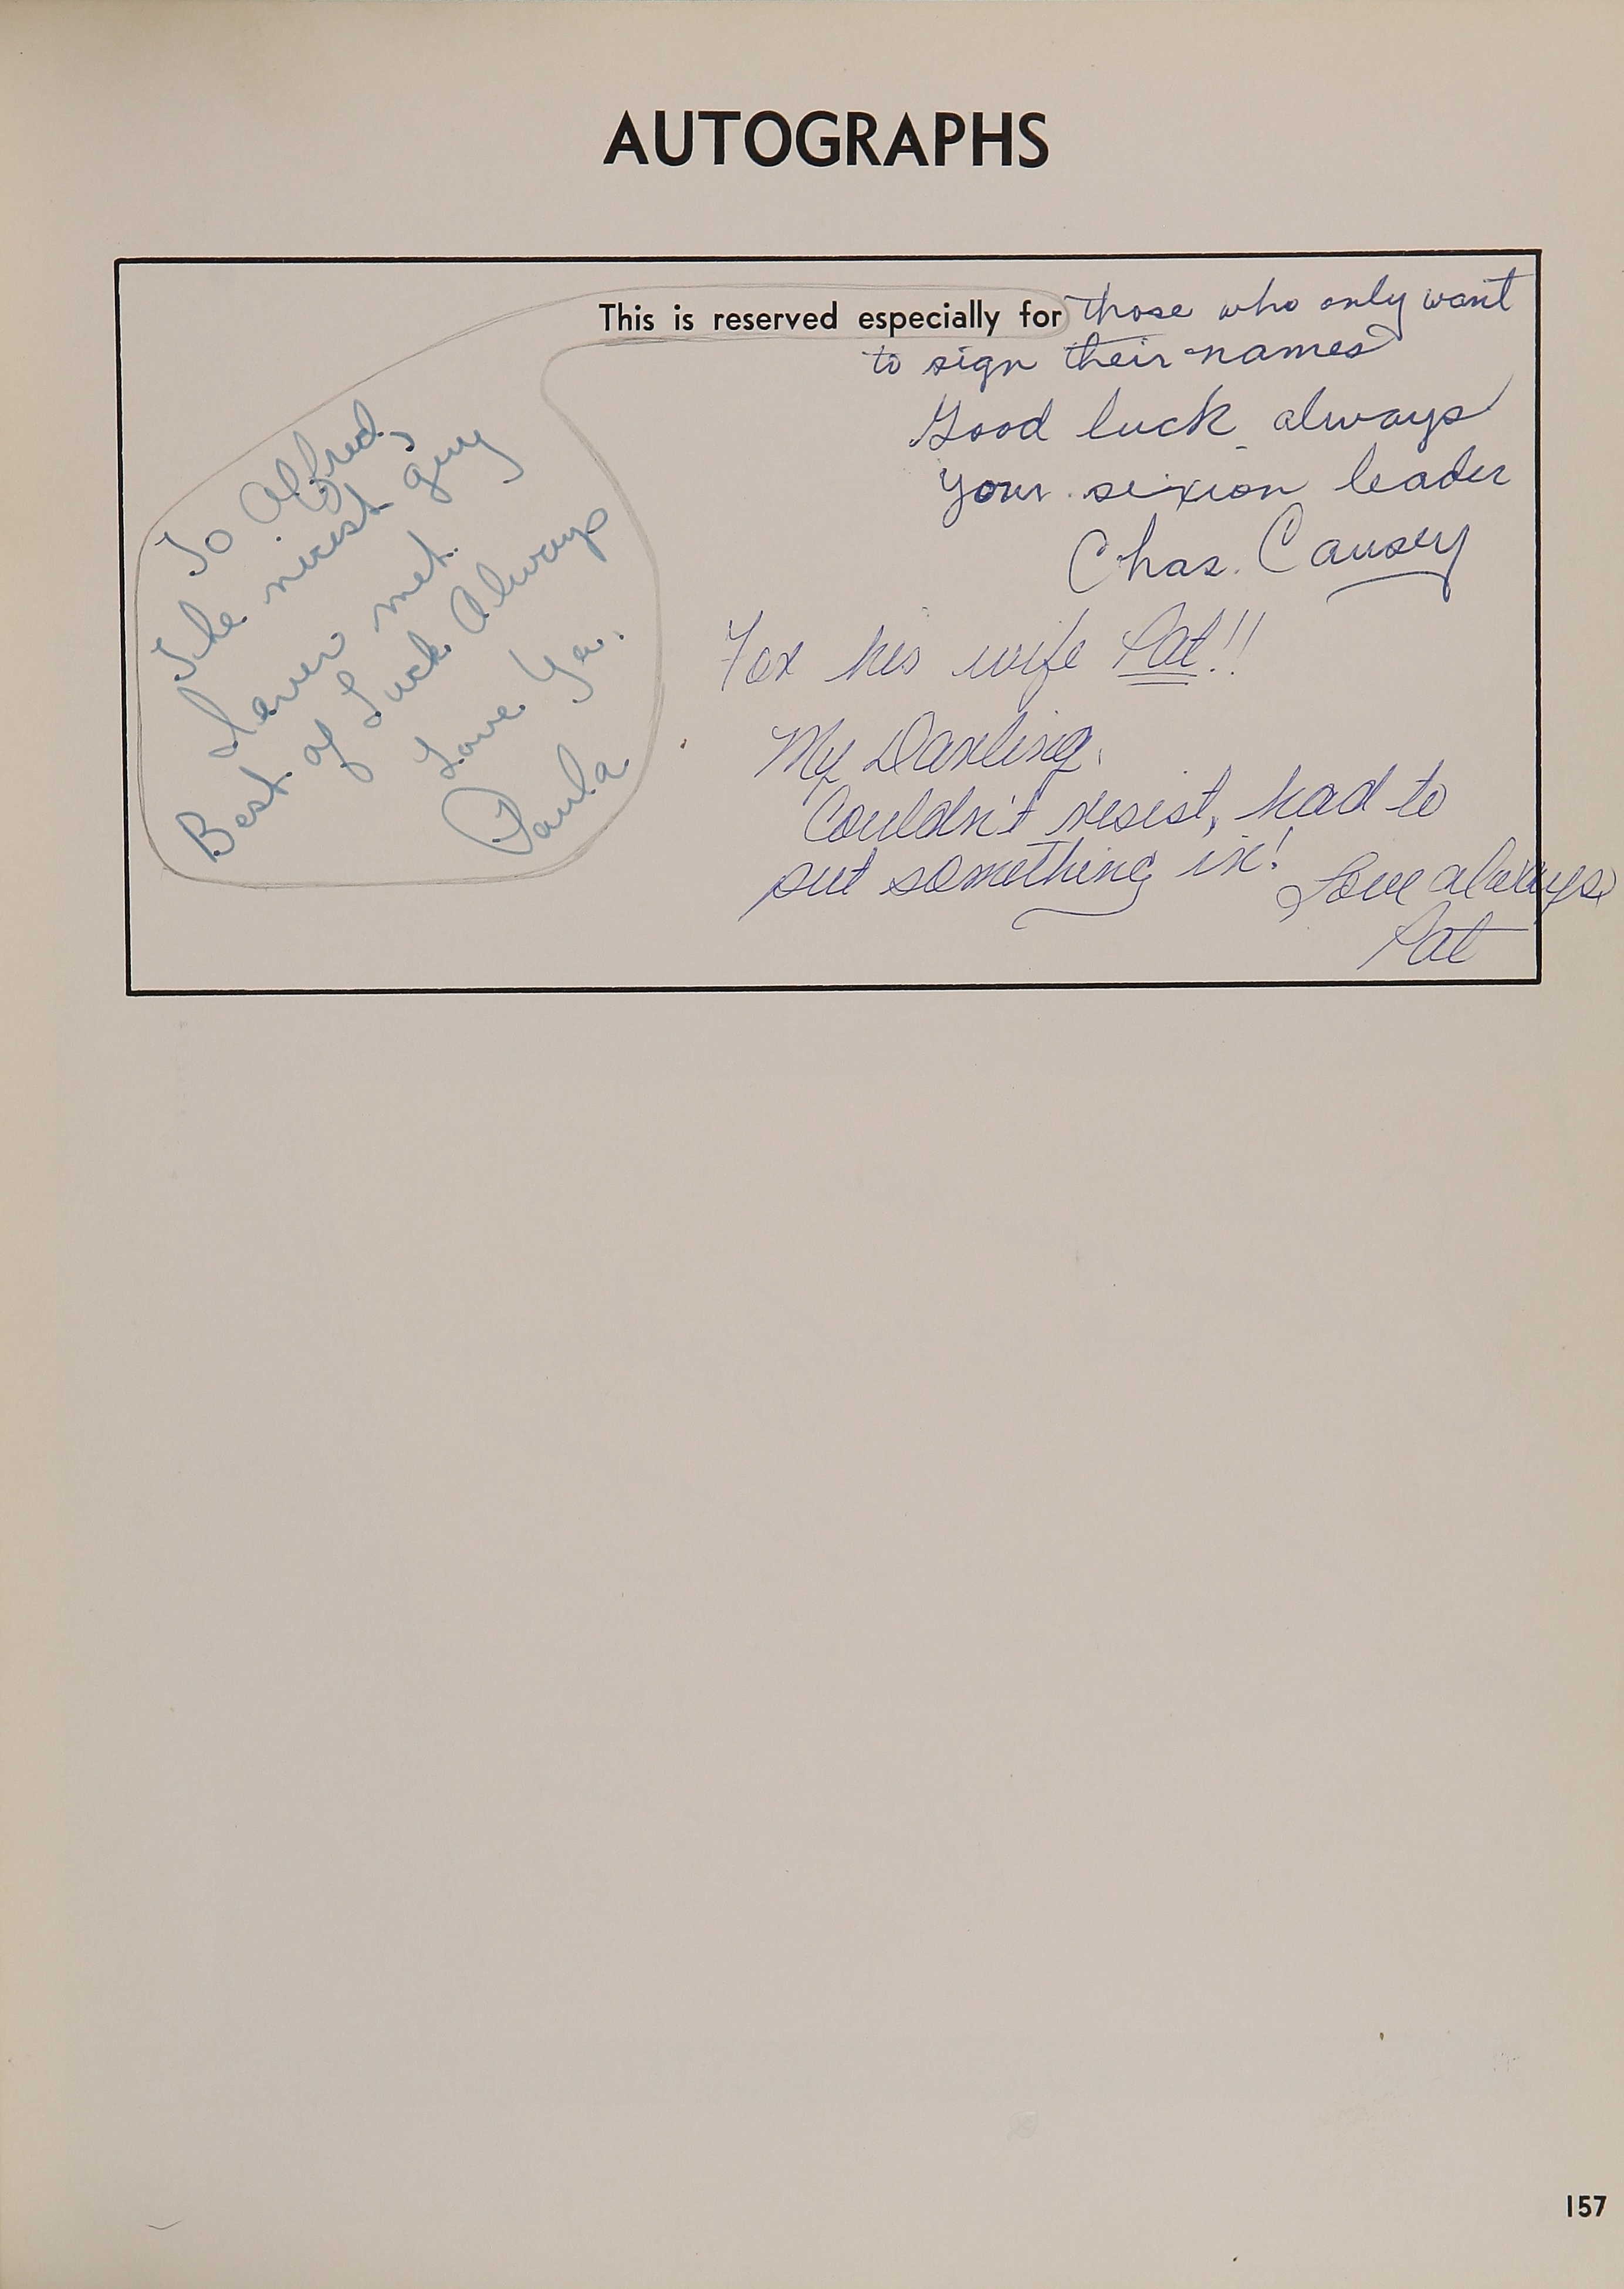 AUTOGRAPHS
This is reserved especially for those who only want
to sign their names
Good luck always
Your sexion leader
Chas. Causey
To Alfred,
The nicest guy
I ever met.
Best of Luck Always
Love Ya.
Paula
For his wife Pat!!
My Darling,
Couldn't resist, had to
put something in! Love always
Pat
157